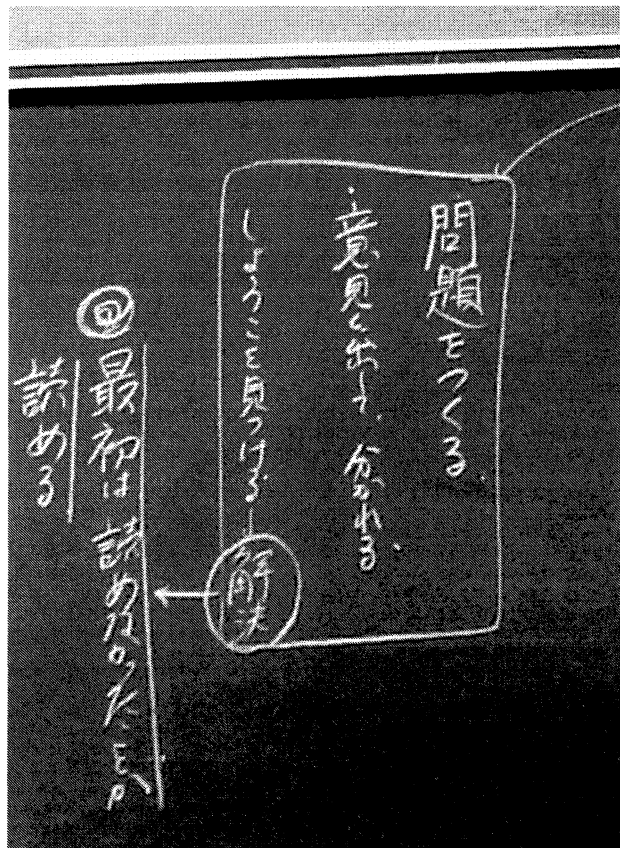 問題をつくる。
・意見を出して、分かれる。
しょうこを見つける→解決
最初は読めなかったことが
読める